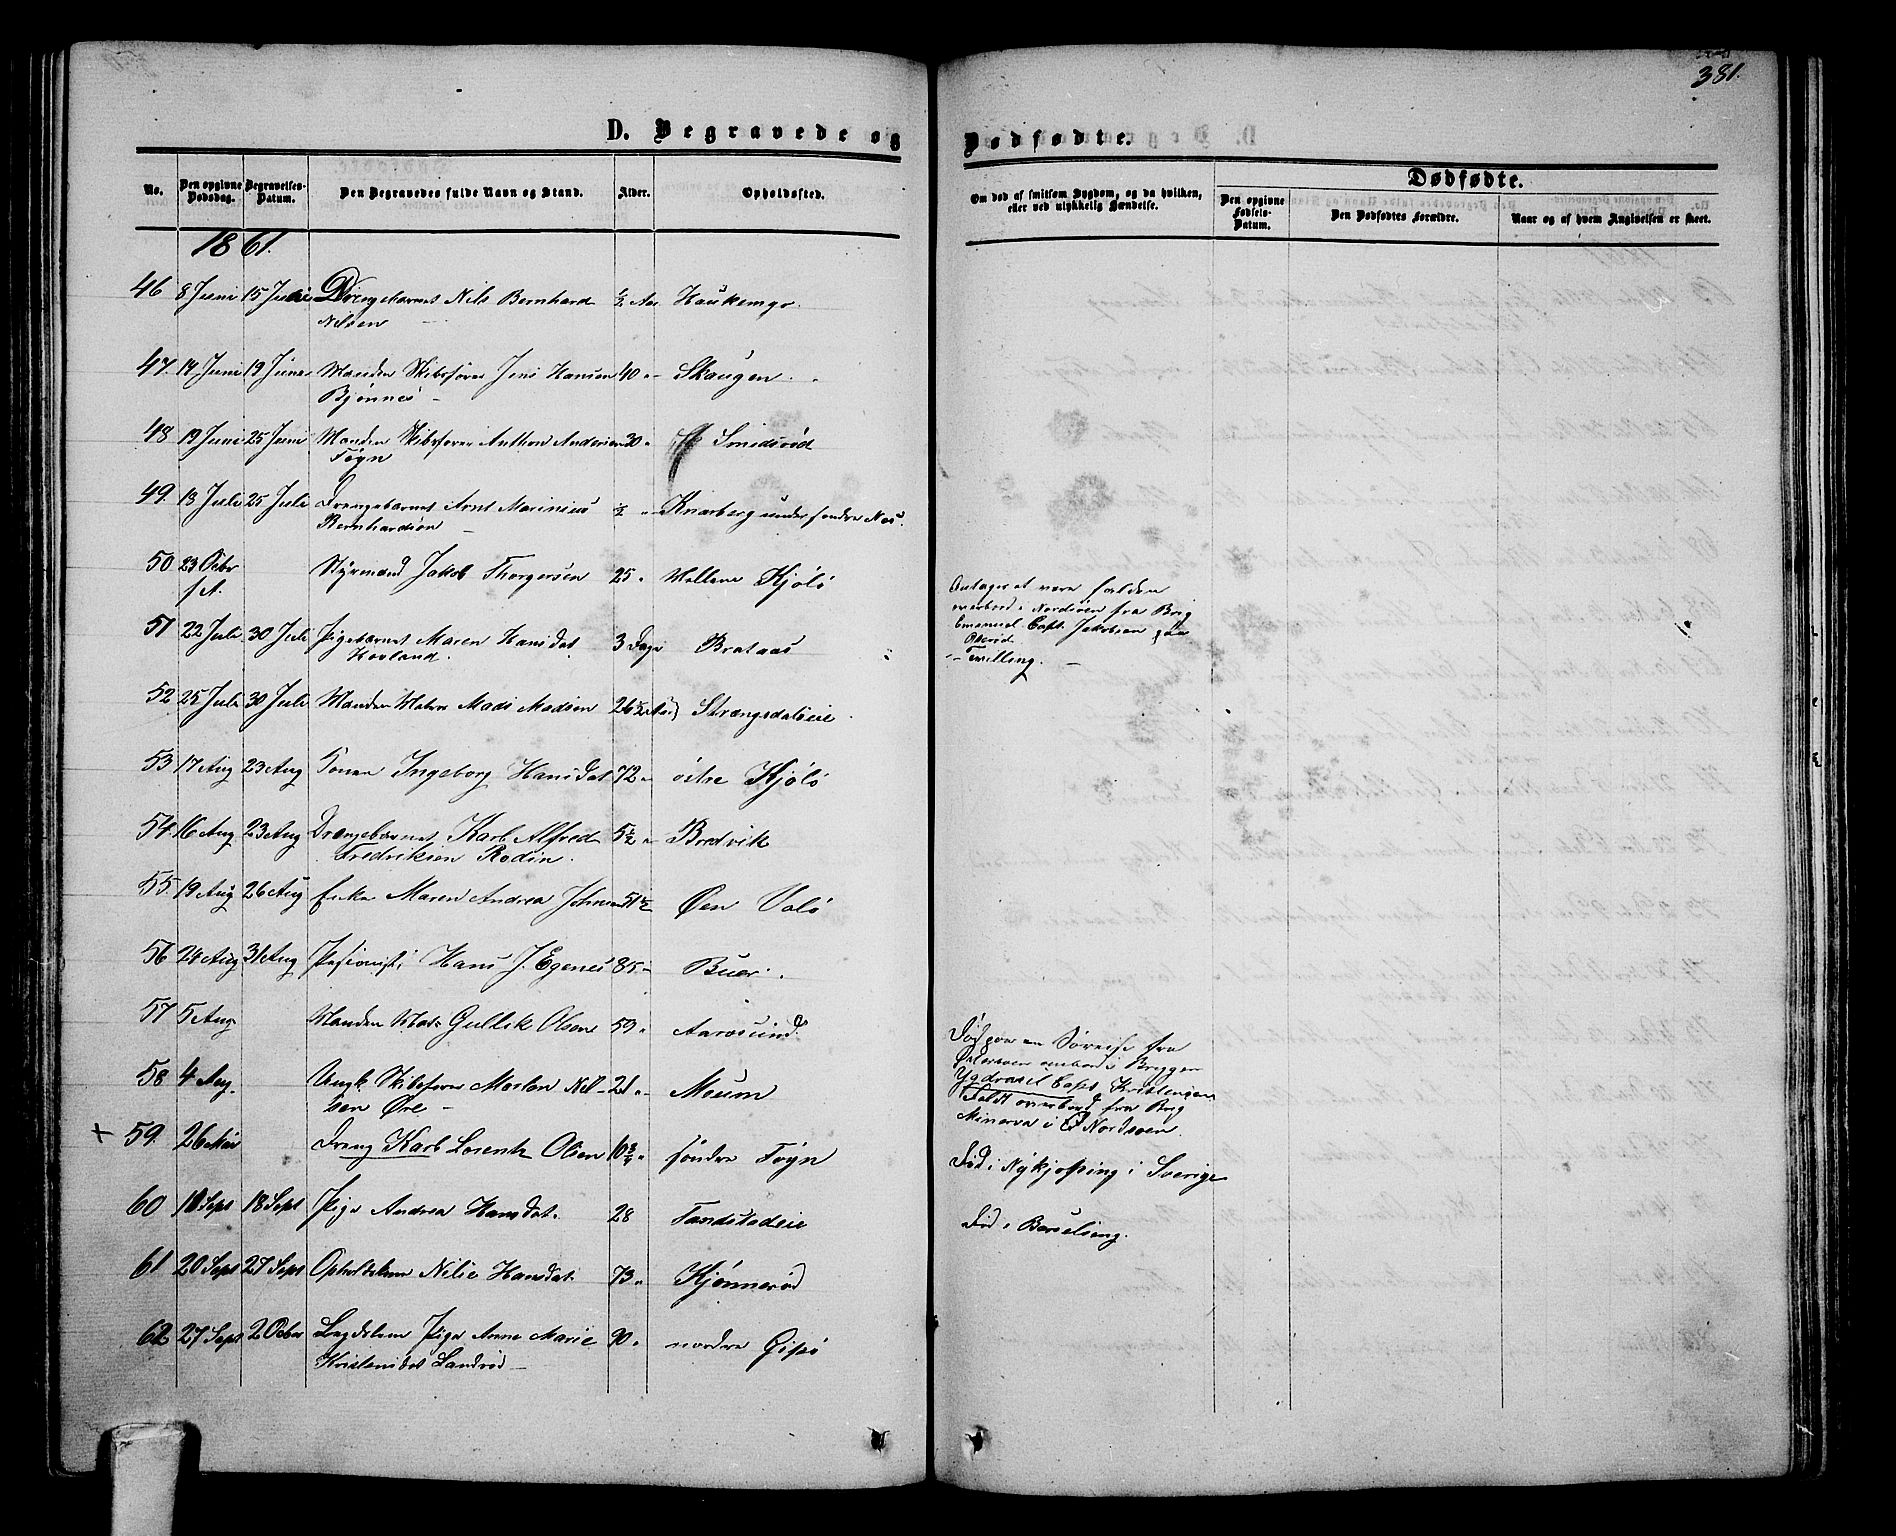 381.
D. Begravede og Dødfødte.
No. Den opgivne Dødsdag. Begravelses-Datum. Den Begravedes fulde Navn og Stand. Alder. Opholdssted. Om død af smitsom Sygdom, og da hvilken, eller ved ulykkelig Hændelse. Dødfødte. Den opgivne Fødsels-Datum. Den Dødfødtes Forældre. Naar og af hvem Angivelsen er skeet.
1861.
46 8 Juni 15 Juni Drengebarnet Nils Bernhard ½ Aar Haukemyr
Nilsen –
47. 14 Juni 19 Juni Manden Skibsfører Jens Hansen 40 " Skaugen.
Bjønnes –
48 19 Juni 25 Juni Manden Skibsfører Anthon Andersen 30 " Smidsrød
Føyn
49. 13 Juli 25 Juli Drengebarnet Arnt Marinius ½ " Knarberg under søndre Nes.
Bernhardsen –
50 23 Octbr Styrmand Jakob Thorgersen 25 " Mellem Kjølø
f. A.
Antages at være falden
overbord i Nordsøen fra Brig
Emanuel Capt. Jakobsen paa
51 22 Juli 30 Juli Pigebarnet Maren Hansdat 3 Dage Brataas
Hovland.
– Tvilling. –
52 25 Juli 30 Juli Manden Matros Mads Madsen 26½ Aar Strængsdaleie
53 17 Aug 23 Aug Konen Ingeborg Hansdat 72 " østre Kjølø
54. 16 Aug 23 Aug Drengebarnet Karl Alfred 5½ " Bredvik
Fredriksen Rodin.
55. 19 Aug 26 Aug Enke Maren Andrea Johnsen 51½ Øen Valø
56 24 Aug 31 Aug Hans J. Egenes 85 " Buer.
57 5 Aug Manden Matr Gullik Olsen 59 " Aarøsund.
Død paa en Søreise fra
Østersøen ombord i Briggen
Ygdrasel Capt. Kristensen
58. 4 Aug. Ungk. Skibsfører Morten Nil- 21 " Moum
sen Øre –
Faldt overbord fra Brig
Minerva i Nordsøen.
+ 59. 26 Mai Dreng Karl Lorentz Olsen 10¾ " søndre Føyn Død i Nykjøping i Sverige
60 10 Sept 18 Sept Pige Andrea Hansdat. 28 Tandstadeie Død i Barselseng.
61 20 Sept 27 Sept Opholdslem Nilie Hansdat 73 " Kjønnerød
62 27 Sept 2 Octbr Lægdslem Pige Anne Marie 90 " nordre Gipø
Kristensdat Sandrød –